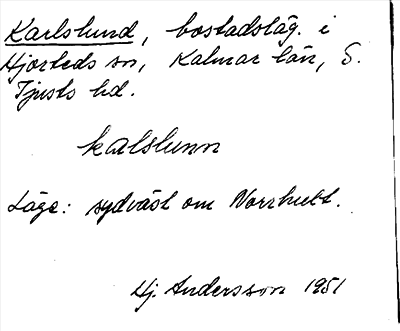 Karlslund, bostadsläg. i
Hjorteds sn, Kalmar län, S.
Tjusts hd.
kalslunn
Läge: sydväst om Norrhult.
Hj. Andersson 1951